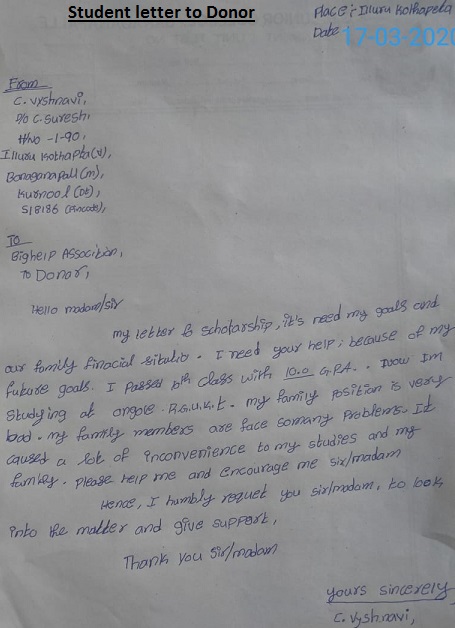 Student letter to Donor
Place:- Illuru Kothapeta
Date 17-03-2020
From
C. Vyshnavi,
D/o C. Suresh,
H/No -1-90,
Illuru Kothapta(v),
Banaganapall (m),
Kurnool (Dt),
518186 (Pincode),
To
Bighelp Association,
To Donor,
Hello madam/sir
my letter to scholarship, it's need my goals and
our family finacial sitution. I need your help; because of my
future goals. I passed 10th class with 10.0 G.P.A.. Now Im
studying at ongole. R.G.U.K.T. my family position is very
bad. my family members are face somany problems. It
caused a lot of inconvenience to my studies and my
family. please help me and encourage me sir/madam
Hence, I humbly requet you sir/madam, to look
into the matter and give support,
Thank you sir/madam
yours sincerely
C. Vyshnavi,